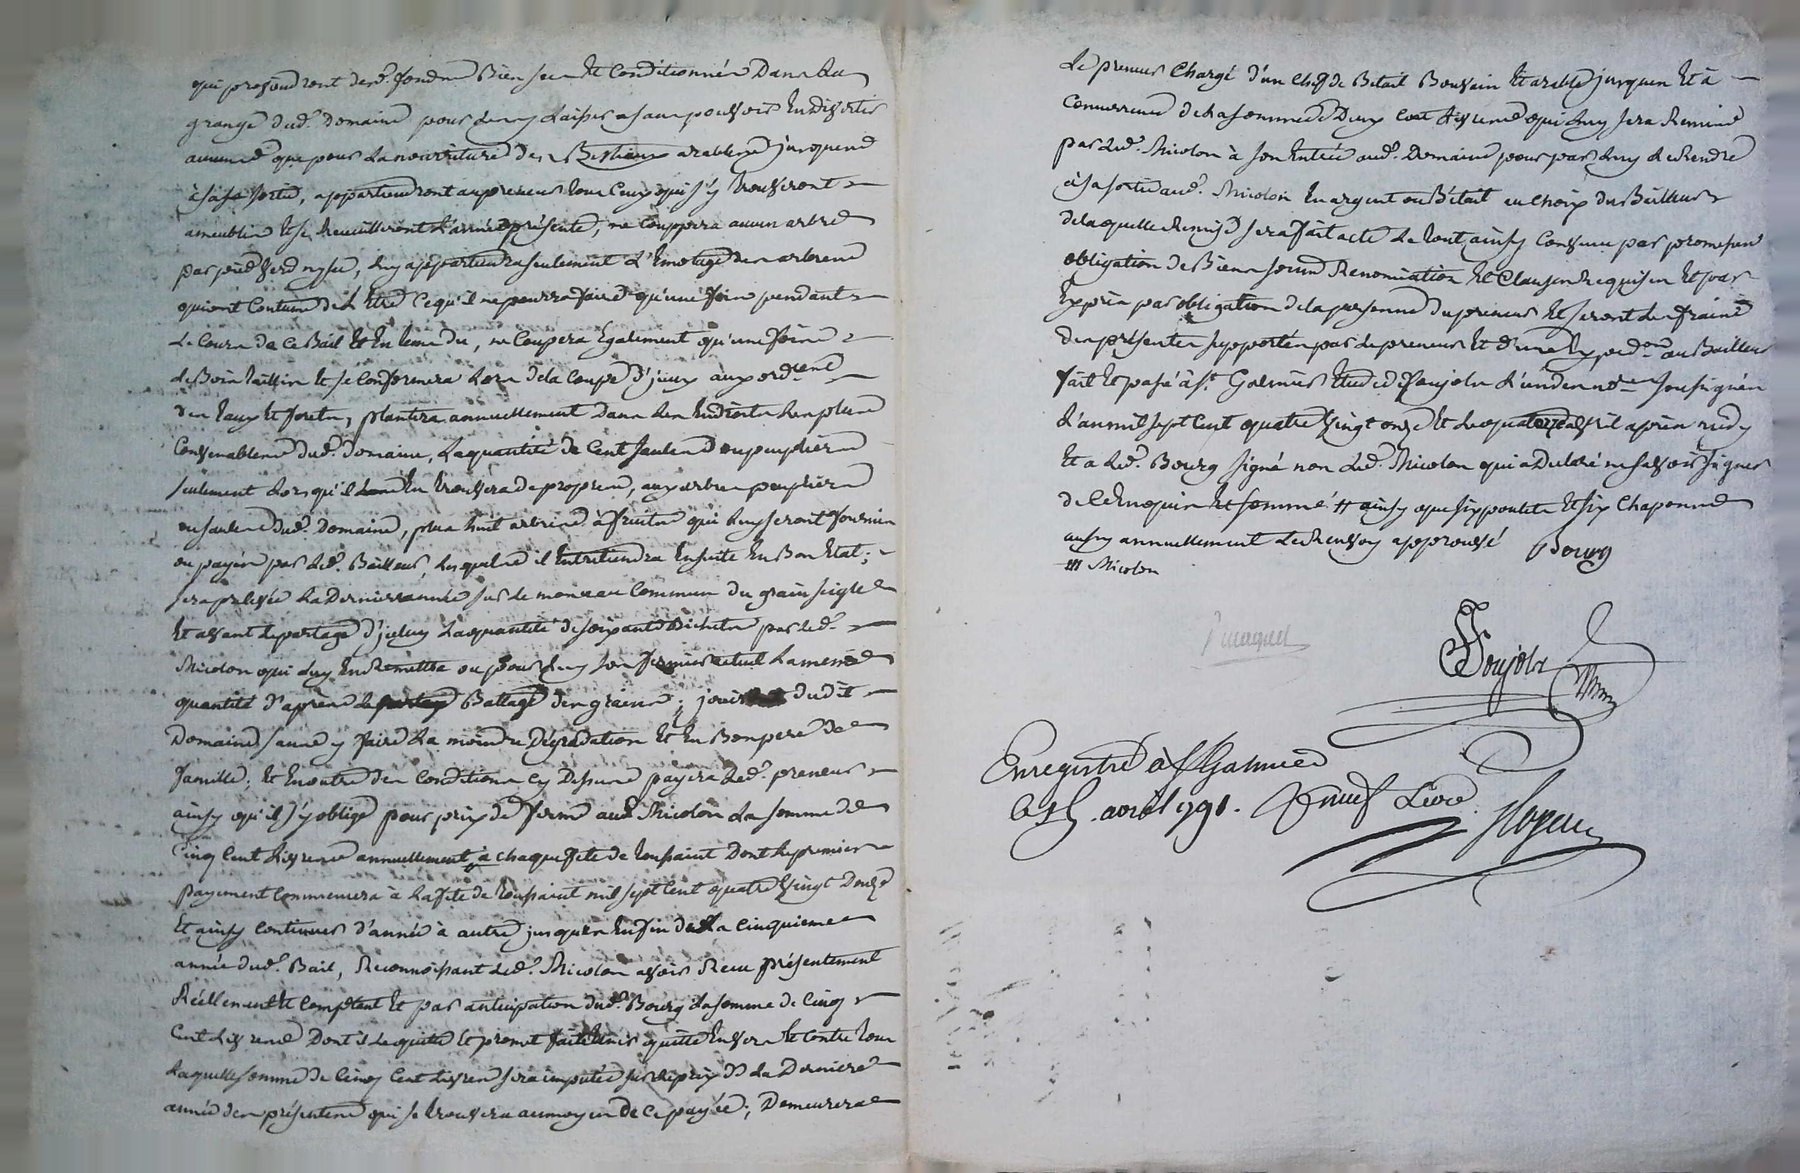 qui proviendront dud. fond Bien sec et Conditionnés Dans la
grange dud. Domaine pour luy laisser sans pouvoir En divertir
aucune que pour la nourriture des Bestiaux arables jusquend
à sa sortie, appartiendront au preneur tous ceux qui s'y trouveront
ameublis et se Recueilleront l'année présente, ne Couppera aucun arbre
par pied verd ny sec, luy appartiendra seulement l'Emotage des arbres
qui ont Coutume de l'Etre Ce qu'il ne pourra faire qu'une fois pendant
le Cours de ce Bail Et En tems du, ne Coupera Egalement qu'une fois
le Bois taillis Et se Conformera Lors de la Coupe d'jceux aux ordces
des Eaux Et forets, plantera annuellement Dans les Endroits les plus
Convenables dud. Domaine, La quantité de Cent saules Ou peupliers
seulement Lorsqu'il En trouvera de propres, aux arbres peupliers
ou saules dud. Domaine, plus huit arbres à fruits qui luy seront fournis
ou payés par led. Bailleur, Lesquels il Entretiendra Ensuite En Bon Etat;
sera prelevée La Derniere année sur le monceau Commun du grain seigle
Et avant le partage d'jceluy La quantité de soixante Bichets par led.
Nicolon qui luy En Remettra ou pour luy son fermier actuel La meme
quantité d'après le Battage des grains; jouira dudit
Domaine sans y faire La moindre Dégradation Et En Bon pere de
famille; Et En outre des Conditions cy Dessus payera Led. preneur
ainsy qu'il s'y oblige pour prix de ferme aud. Nicolon La somme de
Cinq Cent Livres annuellement # à chaque fete de toussaint Dont le premier
payement Commencera à La fete de toussaint mil sept Cent quatre vingt Douze
Et ainsy Continuer d'année à autre jusques En fin de La Cinquieme
année dud. Bail, Reconnoissant Led. Nicolon avoir Recu présentement
Réellement Et Comptant Et par anticipation dud. Bourg La somme de Cinq
Cent Livres Dont il Le quitte Et promet faire tenir quitte Envers Et Contre tous
Laquelle somme de Cinq Cent Livres sera imputée sur le prix de La Derniere
année des présentes qui se trouvera au moyen de ce payée; Demeurera
Le preneur Chargé d'un Chef de Betail Bouvain Et arable jusques Et à
Concurrence de La somme de Deux Cent Livres qui luy sera Remise
par Led. Nicolon à son Entrée aud. Domaine pour par luy Le Rendre
à sa sortie aud. Nicolon En argent ou Bétail au Choix du Bailleur
de laquelle Remise sera fait acte Le tout ainsy Convenu par promesses
obligation de Biens soumis Renonciation Et Clauses Requises Et par
Exprès par obligation de la personne du preneur Et seront Les frais
des présentes supportés par le preneur Et d'une Expedon au Bailleur
fait Et passé à St. Galmier Etude de foujols L'un des nores soussignés
L'an mil sept Cent quatre vingt onze Et Le quatorze avril après midy
Et a Led. Bourg signé non Led. Nicolon qui a Declaré ne savoir signer
de Ce Enquis Et sommé # ainsy que six poulets Et six Chapons
aussy annuellement Le Renvoy approuvé Bourg
### Nicolon
Foujols
Enregistré à St Galmier
Le avril 1791. Livre